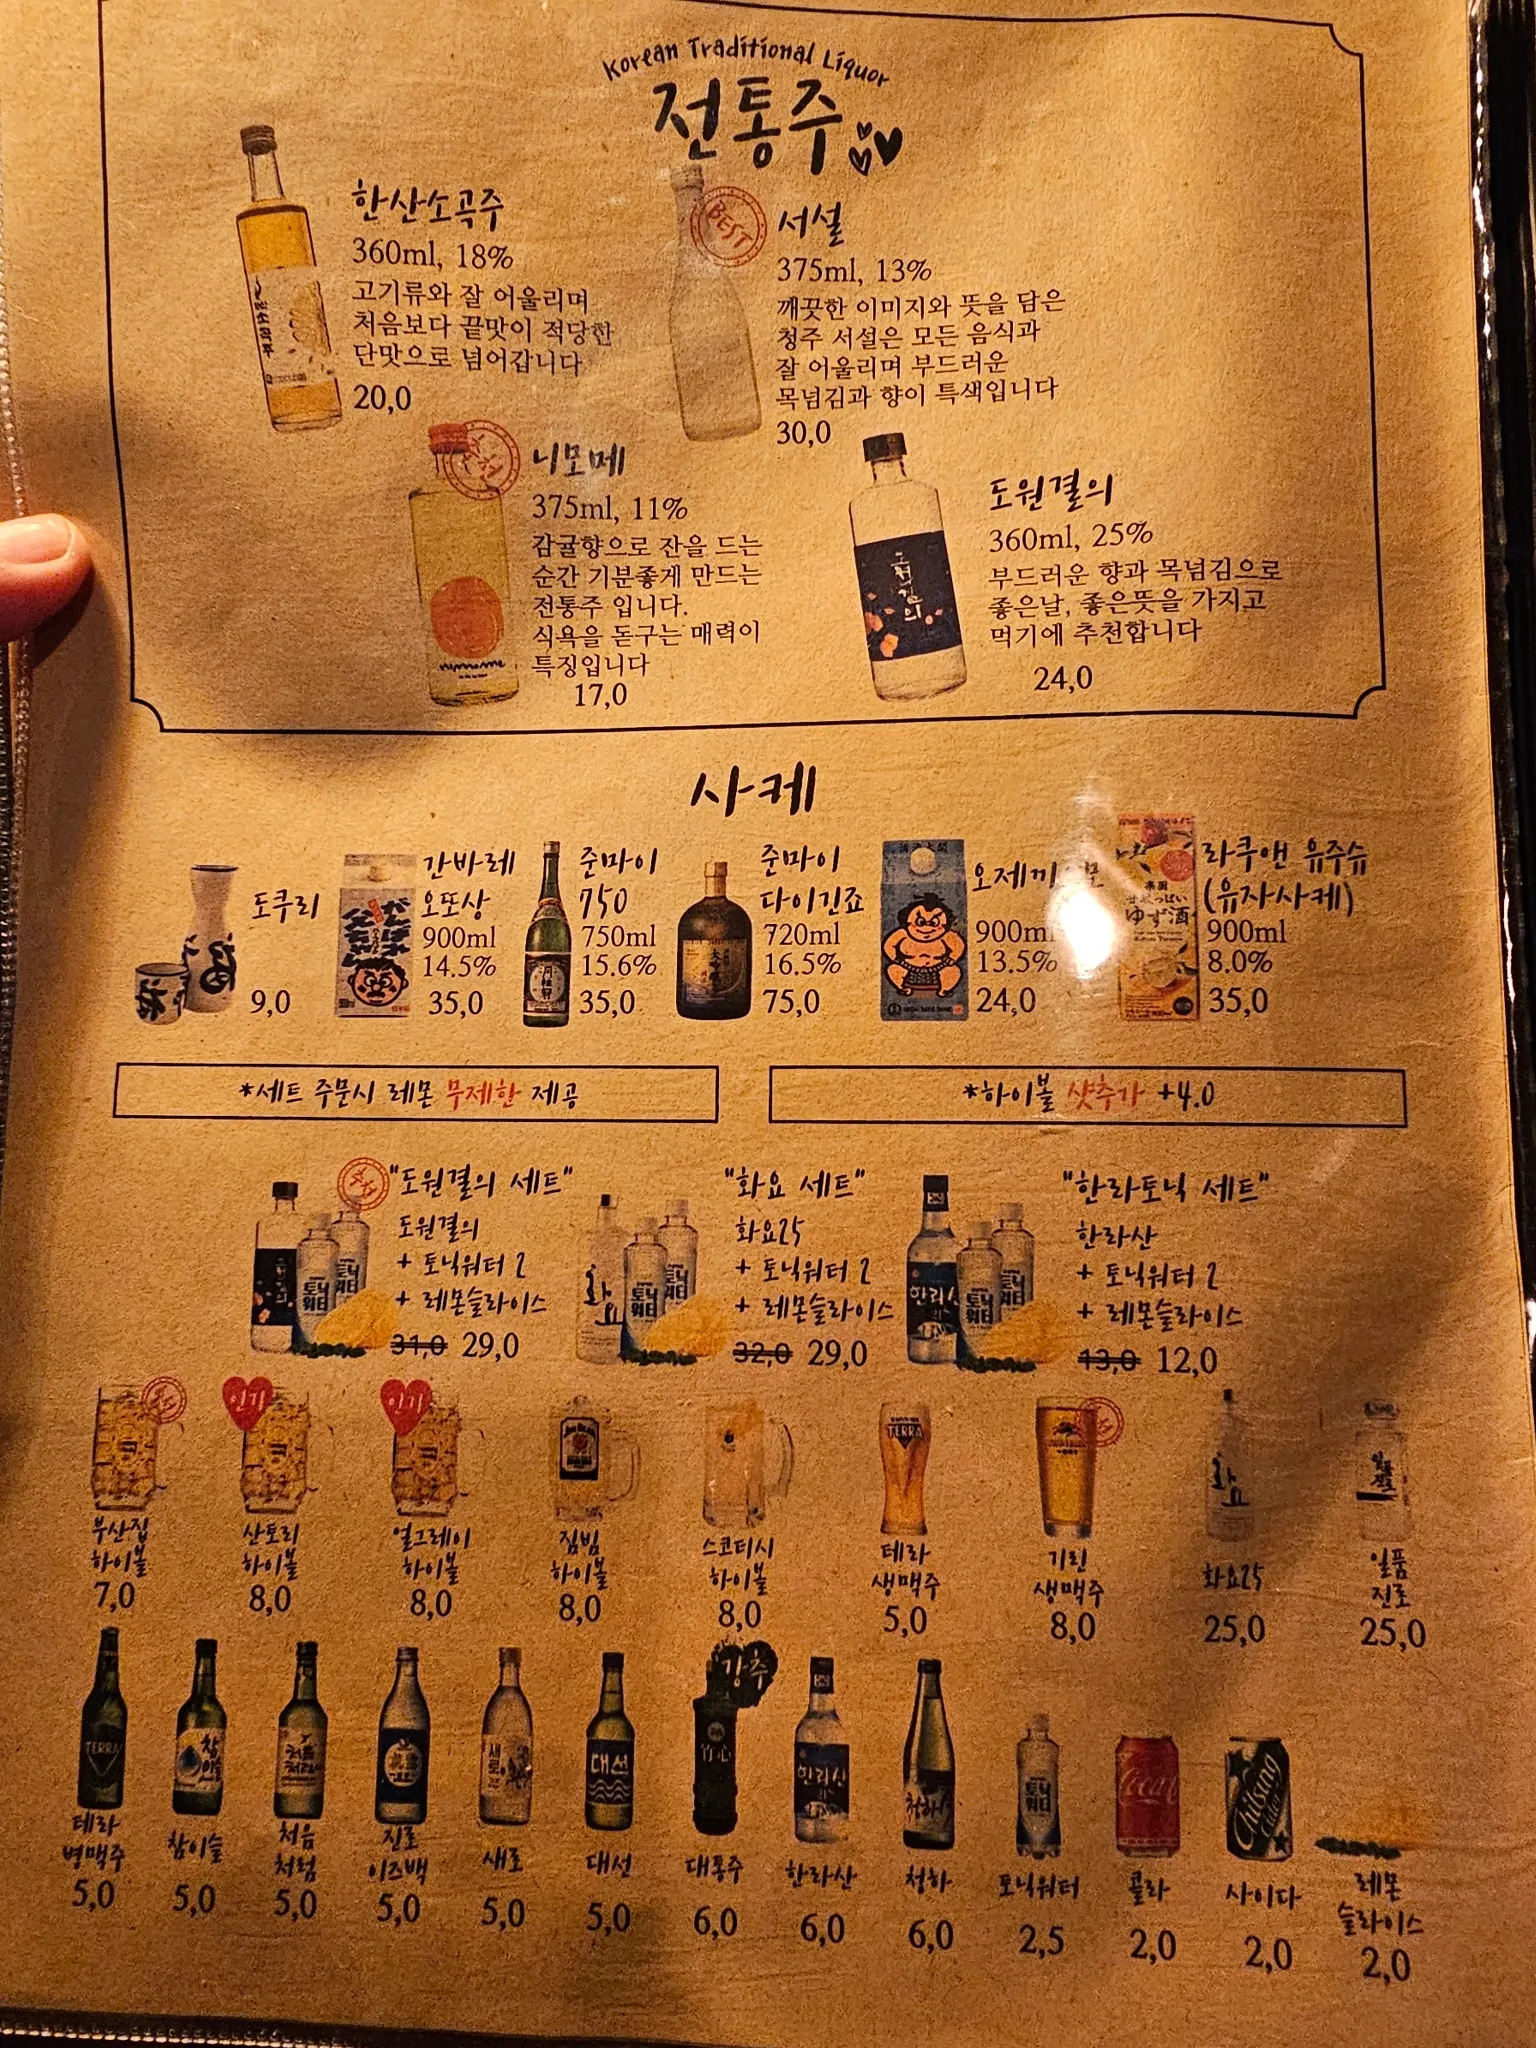 Korean Traditional Liquor
전통주
한산소곡주
360ml, 18%
고기류와 잘 어울리며
처음보다 끝맛이 적당한
단맛으로 넘어갑니다
20,0
BEST
서설
375ml, 13%
깨끗한 이미지와 뜻을 담은
청주 서설은 모든 음식과
잘 어울리며 부드러운
목넘김과 향이 특색입니다
30,0
추천
니모메
375ml, 11%
감귤향으로 잔을 드는
순간 기분좋게 만드는
전통주 입니다.
식욕을 돋구는 매력이
특징입니다
17,0
도원결의
도원결의
360ml, 25%
부드러운 향과 목넘김으로
좋은날, 좋은뜻을 가지고
먹기에 추천합니다
24,0
사케
도쿠리
9,0
간바레
오또상
900ml
14.5%
35,0
준마이
750
750ml
15.6%
35,0
준마이
다이긴죠
720ml
16.5%
75,0
오제끼
900ml
13.5%
24,0
ゆず酒
라쿠앤 유주슈
(유자사케)
900ml
8.0%
35,0
*세트 주문시 레몬 무제한 제공
*하이볼 샷추가 +4.0
추천
"도원결의 세트"
도원결의
+ 토닉워터 2
+ 레몬슬라이스
31,0 29,0
토닉워터
화요
"화요 세트"
화요25
+ 토닉워터 2
+ 레몬슬라이스
32,0 29,0
토닉워터
한라산
"한라토닉 세트"
한라산
+ 토닉워터 2
+ 레몬슬라이스
13,0 12,0
토닉워터
추천
부산집
하이볼
7,0
인기
산토리
하이볼
8,0
인기
얼그레이
하이볼
8,0
짐빔
하이볼
8,0
스코티시
하이볼
8,0
TERRA
테라
생맥주
5,0
추천
기린
생맥주
8,0
화요
화요25
25,0
일품진로
일품
진로
25,0
TERRA
테라
병맥주
5,0
참이슬
참이슬
5,0
처음처럼
처음
처럼
5,0
진로
이즈백
5,0
새로
새로
5,0
대선
대선
5,0
강추
竹心
대통주
6,0
한라산
한라산
6,0
청하
청하
6,0
토닉워터
토닉워터
2,5
Coca
콜라
2,0
Chilsung
Cider
사이다
2,0
레몬
슬라이스
2,0